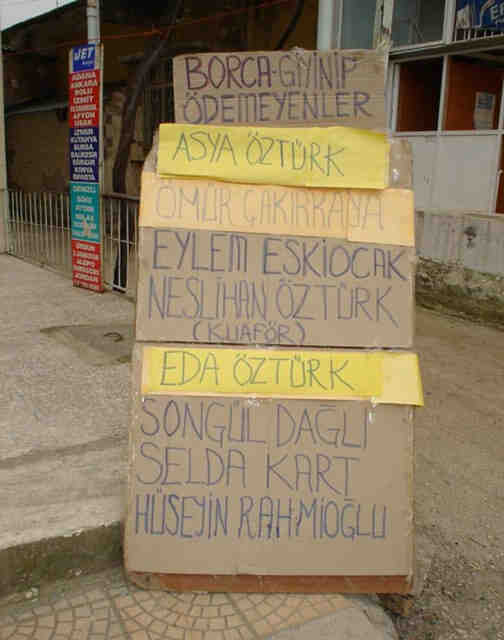 JET
ADANA
ANKARA
BOLU
İZMİT
AFYON
UŞAK
İZMİR
KÜTAHYA
BURSA
KONYA
ISPARTA
DENİZLİ
BORCA-GİYİNİP
ÖDEMEYENLER
ASYA ÖZTÜRK
ÖMÜR ÇAKIRKAYA
EYLEM ESKİOCAK
NESLİHAN ÖZTÜRK
(KUAFÖR)
EDA ÖZTÜRK
SONGÜL DAĞLI
SELDA KART
HÜSEYİN RAHMİOĞLU